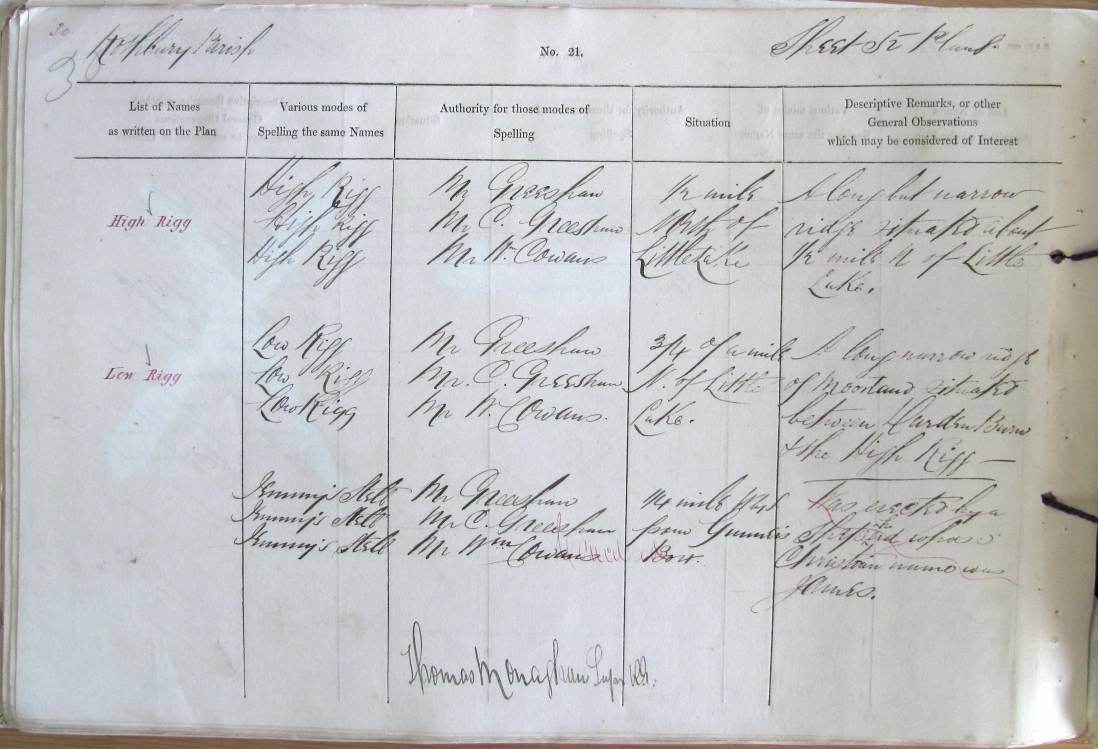 30
3
Rothbury Parish
No. 21.
Sheet 52 Plan 8.
List of Names
as written on the Plan
Various modes of
Spelling the same Names
Authority for those modes of
Spelling
Situation
Descriptive Remarks, or other
General Observations
which may be considered of Interest
High Rigg
High Rigg
High Rigg
High Rigg
Mr Greeshaw
Mr C. Greeshaw
Mr Wm Cowans
1/2 mile
North of
Little Lake
A long but narrow
ridge situated about
1/2 mile N of Little
Lake.
Low Rigg
Low Rigg
Low Rigg
Low Rigg
Mr Greeshaw
Mr. C. Greeshaw
Mr W. Cowans.
3/4 of a mile
N. of Little
Lake.
A long narrow ridge
of Moorland situated
between Harden Burn
& the High Rigg —
Jemmy's Stell
Jemmy's Stell
Jemmy's Stell
Mr Greeshaw
Mr C. Greeshaw
Mr Wm Cowans
1/4 mile
from
Bow.
Was erected by a
Shepherd whose
Christian name was
James.
Thomas Monaghan